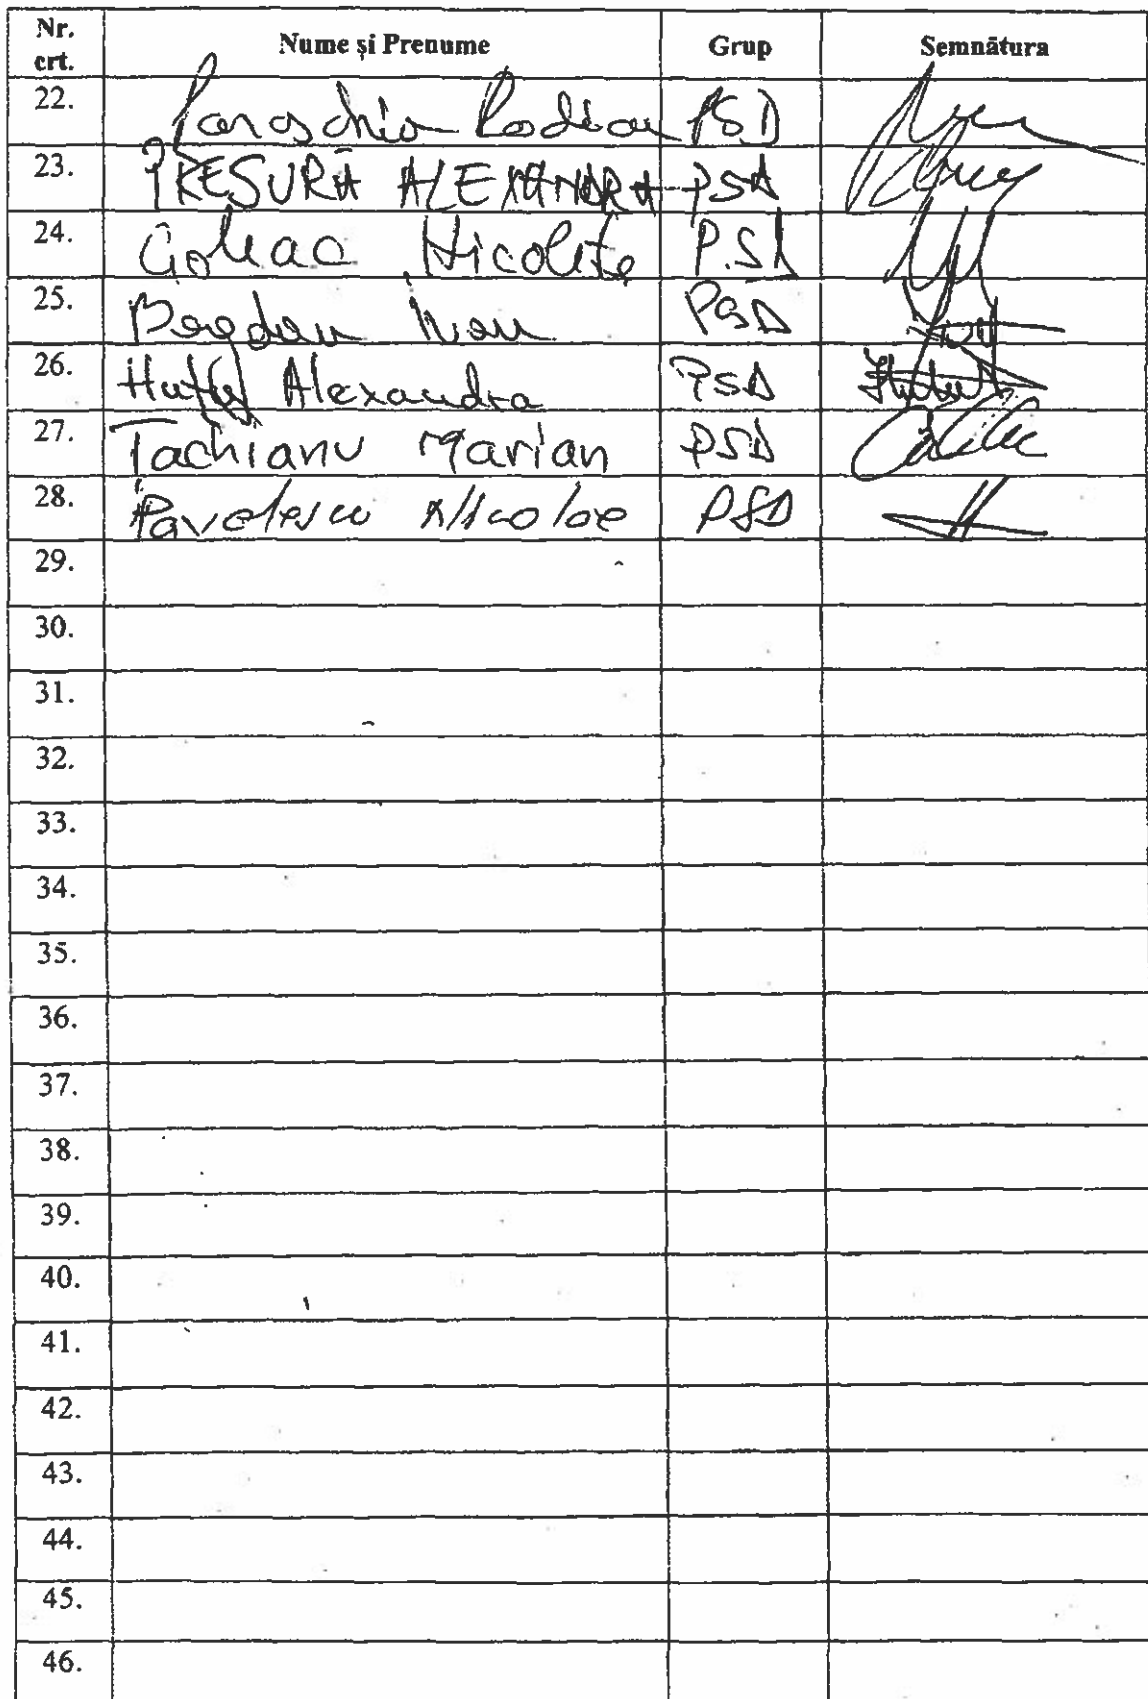 Nr. crt. Nume și Prenume Grup Semnătura
22. Paraschiv Rodica PSD
23. PRESURĂ ALEXANDRA PSD
24. Goleac Nicoleta PSD
25. Bogdan Ivan PSD
26. Huțu Alexandra PSD
27. Tachianu Marian PSD
28. Pavelescu Nicolae PSD
29.
30.
31.
32.
33.
34.
35.
36.
37.
38.
39.
40.
41.
42.
43.
44.
45.
46.